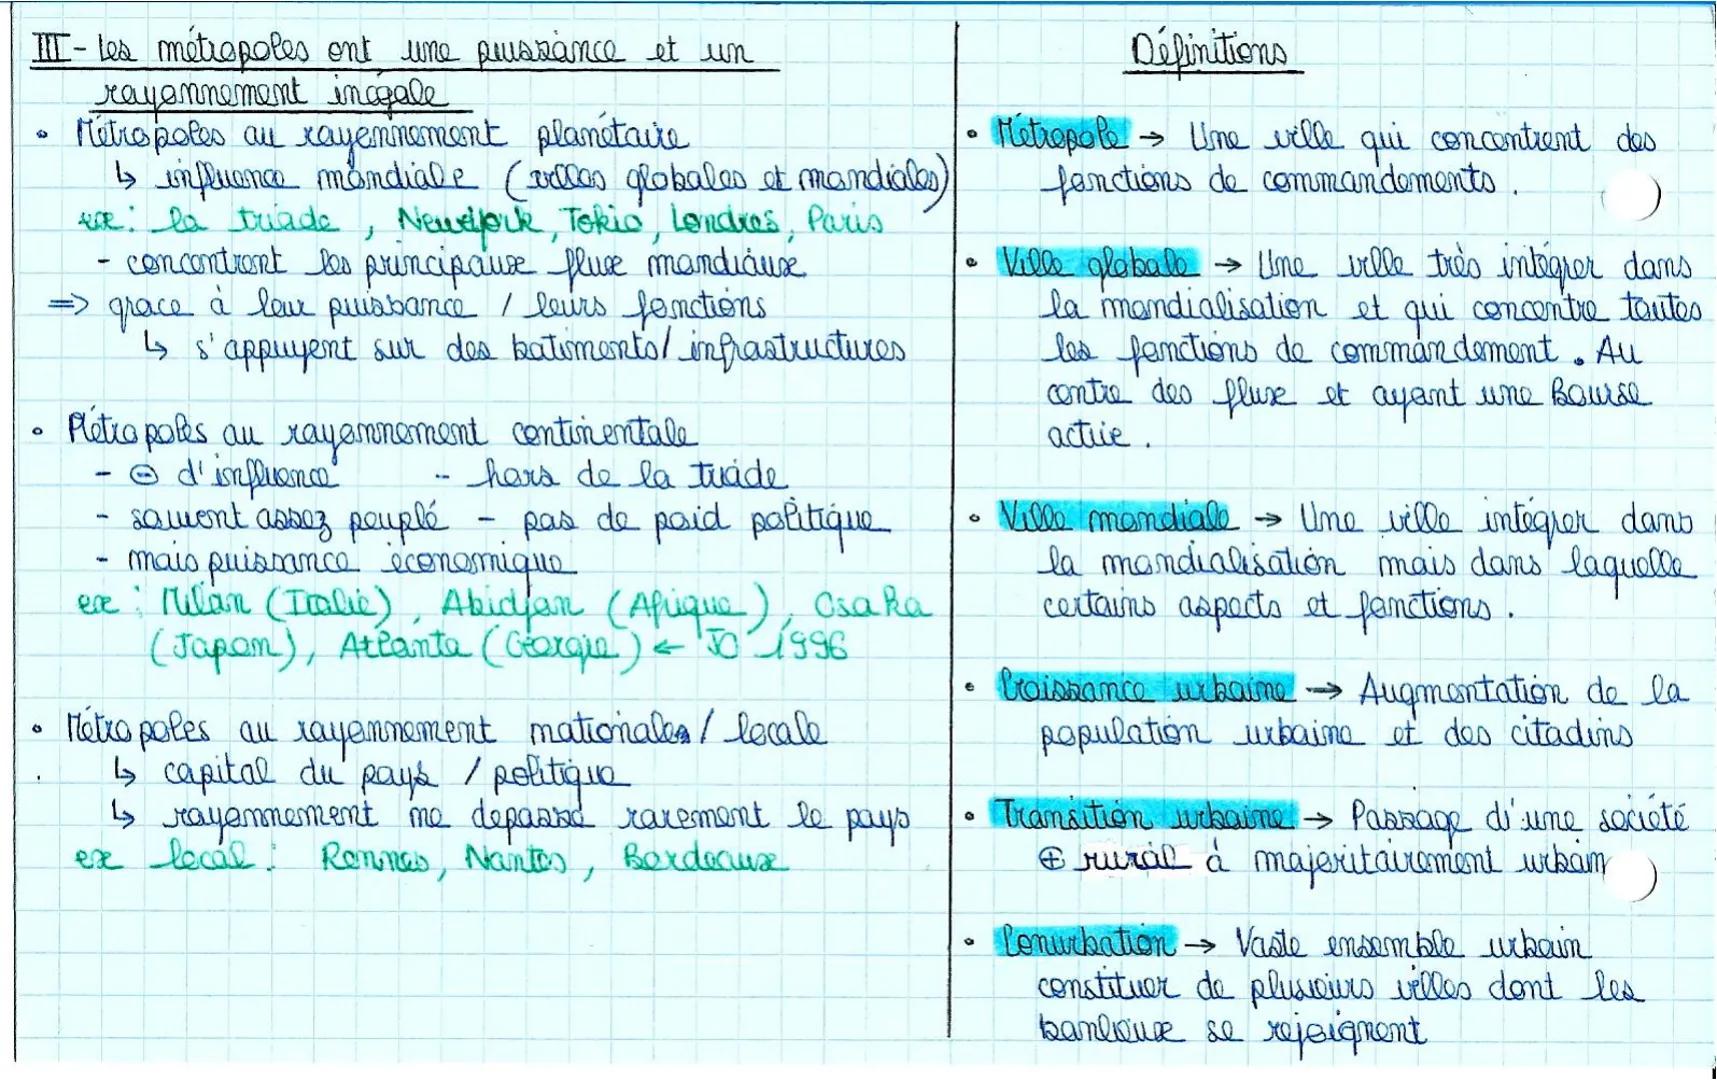 III - les métropoles ont une puissance et un
rayonnement inégale
• Métropoles au rayonnement planétaire
↳ influence mondiale (villes globales et mondiales)
ex : la triade, Newyork, Tokio, Londres, Paris
- concentrent les principaux flux mondiaux
=> grace à leur puissance / leurs fonctions
↳ s'appuyent sur des batiments/ infrastructures
• Métropoles au rayonnement continentale
- ⊖ d'influence - hors de la triade
- souvent assez peuplé - pas de poid politique
- mais puissance économique
ex : Milan (Italie), Abidjan (Afrique), Osaka
(Japon), Atlanta (Géorgie) ← JO 1996
• Métropoles au rayonnement nationales / locale
↳ capital du pays / politique
↳ rayonnement ne depasse rarement le pays
ex local : Rennes, Nantes, Bordeaux
Définitions
• Métropole → Une ville qui concentrent des
fonctions de commandements.
• Ville globale → Une ville très intégrer dans
la mondialisation et qui concentre toutes
les fonctions de commandement. Au
centre des flux et ayant une Bourse
active.
• Ville mondiale → Une ville intégrer dans
la mondialisation mais dans laquelle
certains aspects et fonctions.
• Croissance urbaine → Augmentation de la
population urbaine et des citadins
• Transition urbaine → Passage d'une société
⊕ rural à majoritairement urbain
• Conurbation → Vaste ensemble urbain
constituer de plusieurs villes dont les
banlieux se rejoignent